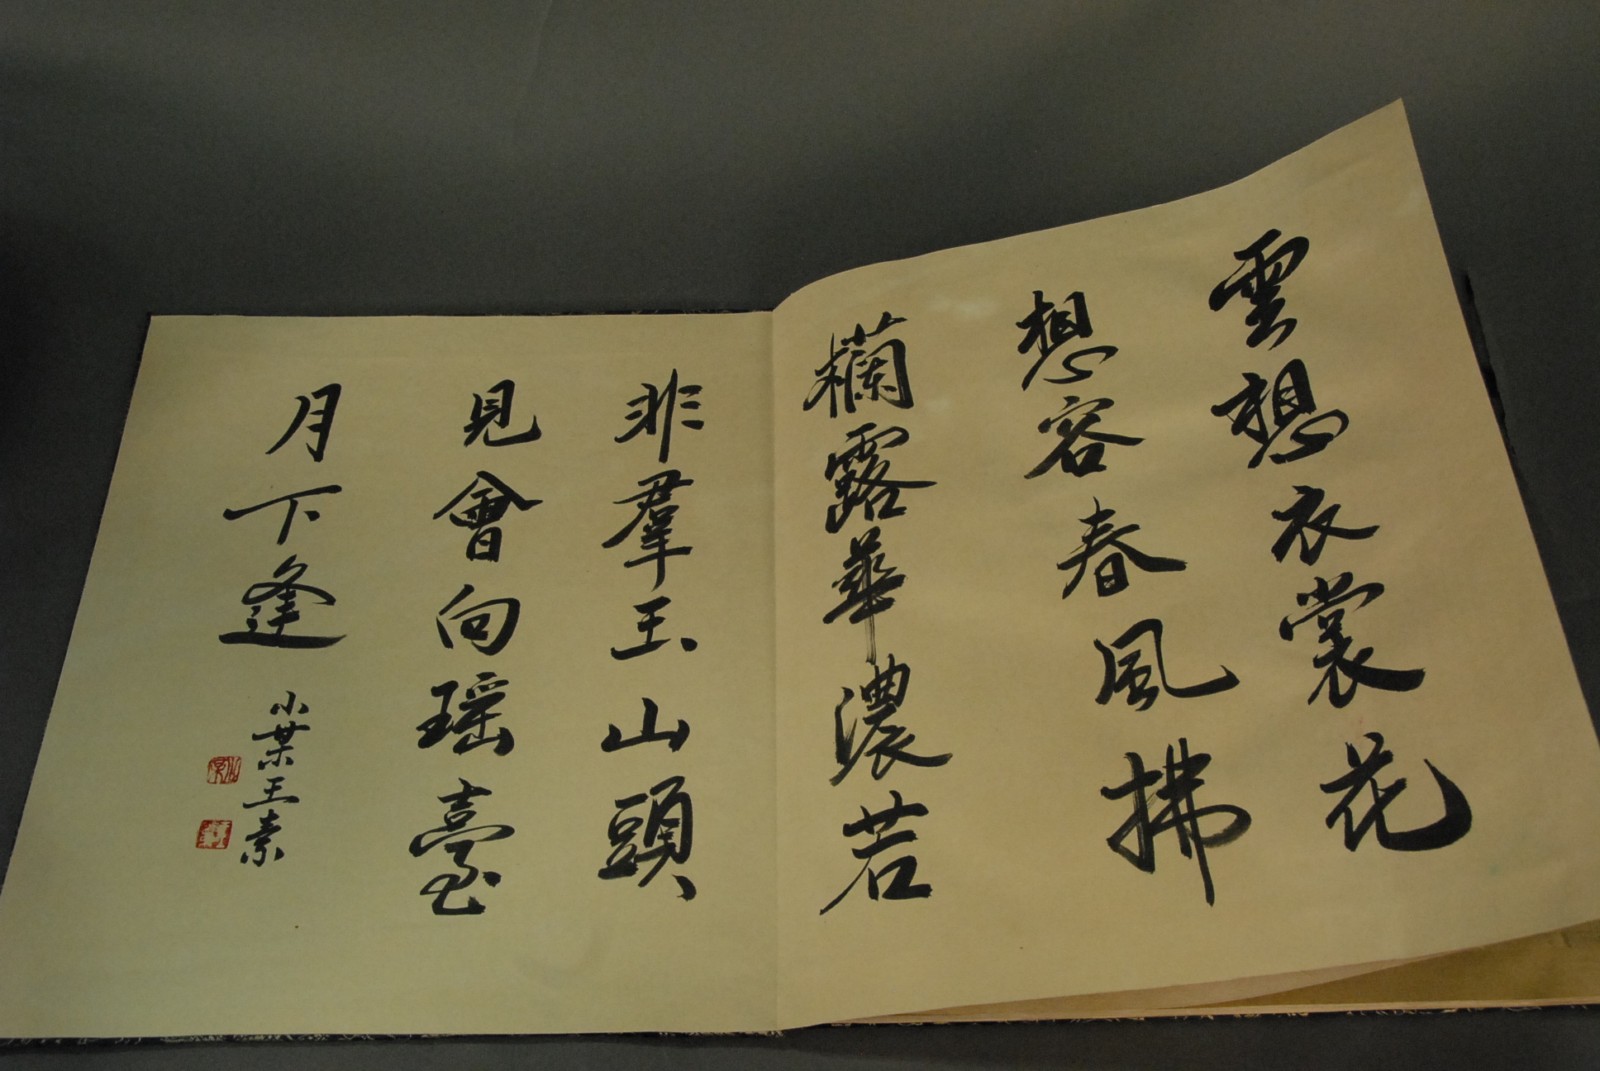 雲想衣裳花
想容春風拂
欄露華濃若
非羣玉山頭
見會向瑶臺
月下逢
小葉王素